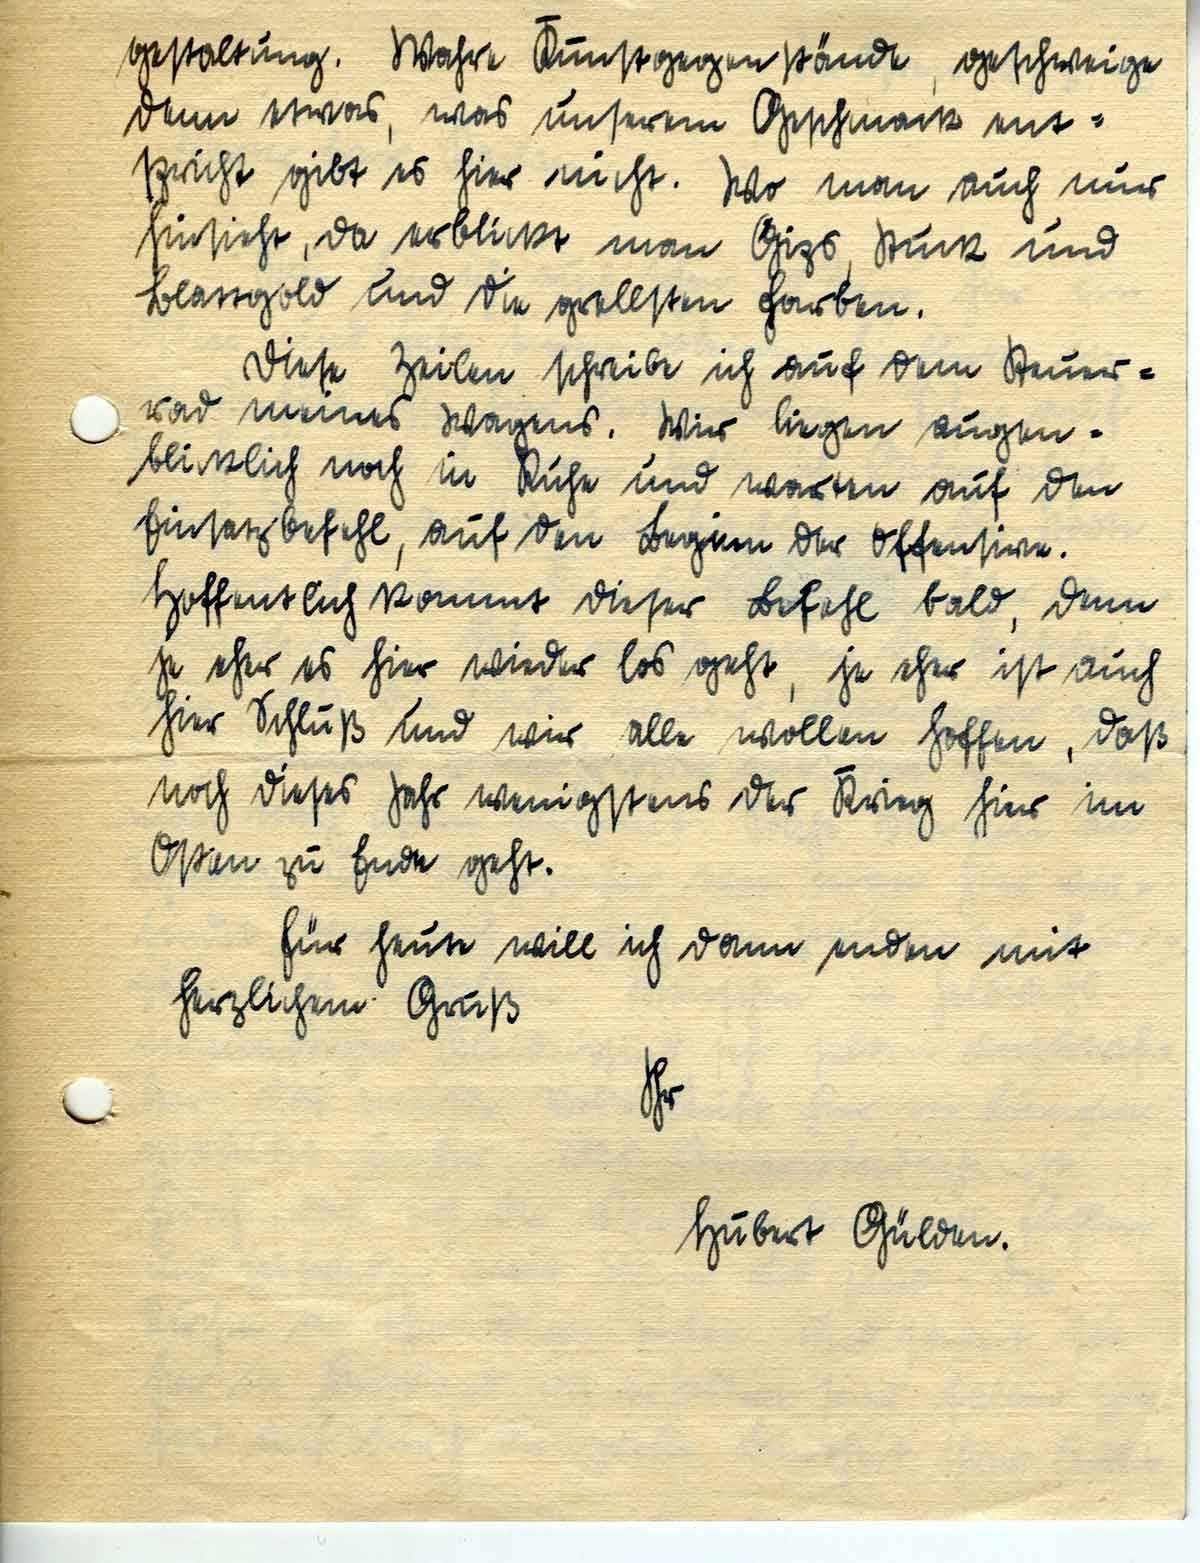 gestaltung. Wahre Kunstgegenstände, geschweige
denn etwas, was unserem Geschmack ent=
spricht gibt es hier nicht. Wo man auch nur
hinsieht, da erblickt man Gips, Stuck und
Blattgold und die grellsten Farben.
Diese Zeilen schreibe ich auf dem Steuer=
rad meines Wagens. Wir liegen augen=
blicklich noch in Ruhe und warten auf den
Einsatzbefehl, auf den Beginn der Offensive.
Hoffentlich kommt dieser Befehl bald, denn
je eher es hier wieder los geht, je eher ist auch
hier Schluß und wir alle wollen hoffen, daß
noch dieses Jahr wenigstens der Krieg hier im
Osten zu Ende geht.
Für heute will ich dann enden mit
herzlichem Gruß
Ihr
Hubert Gülden.